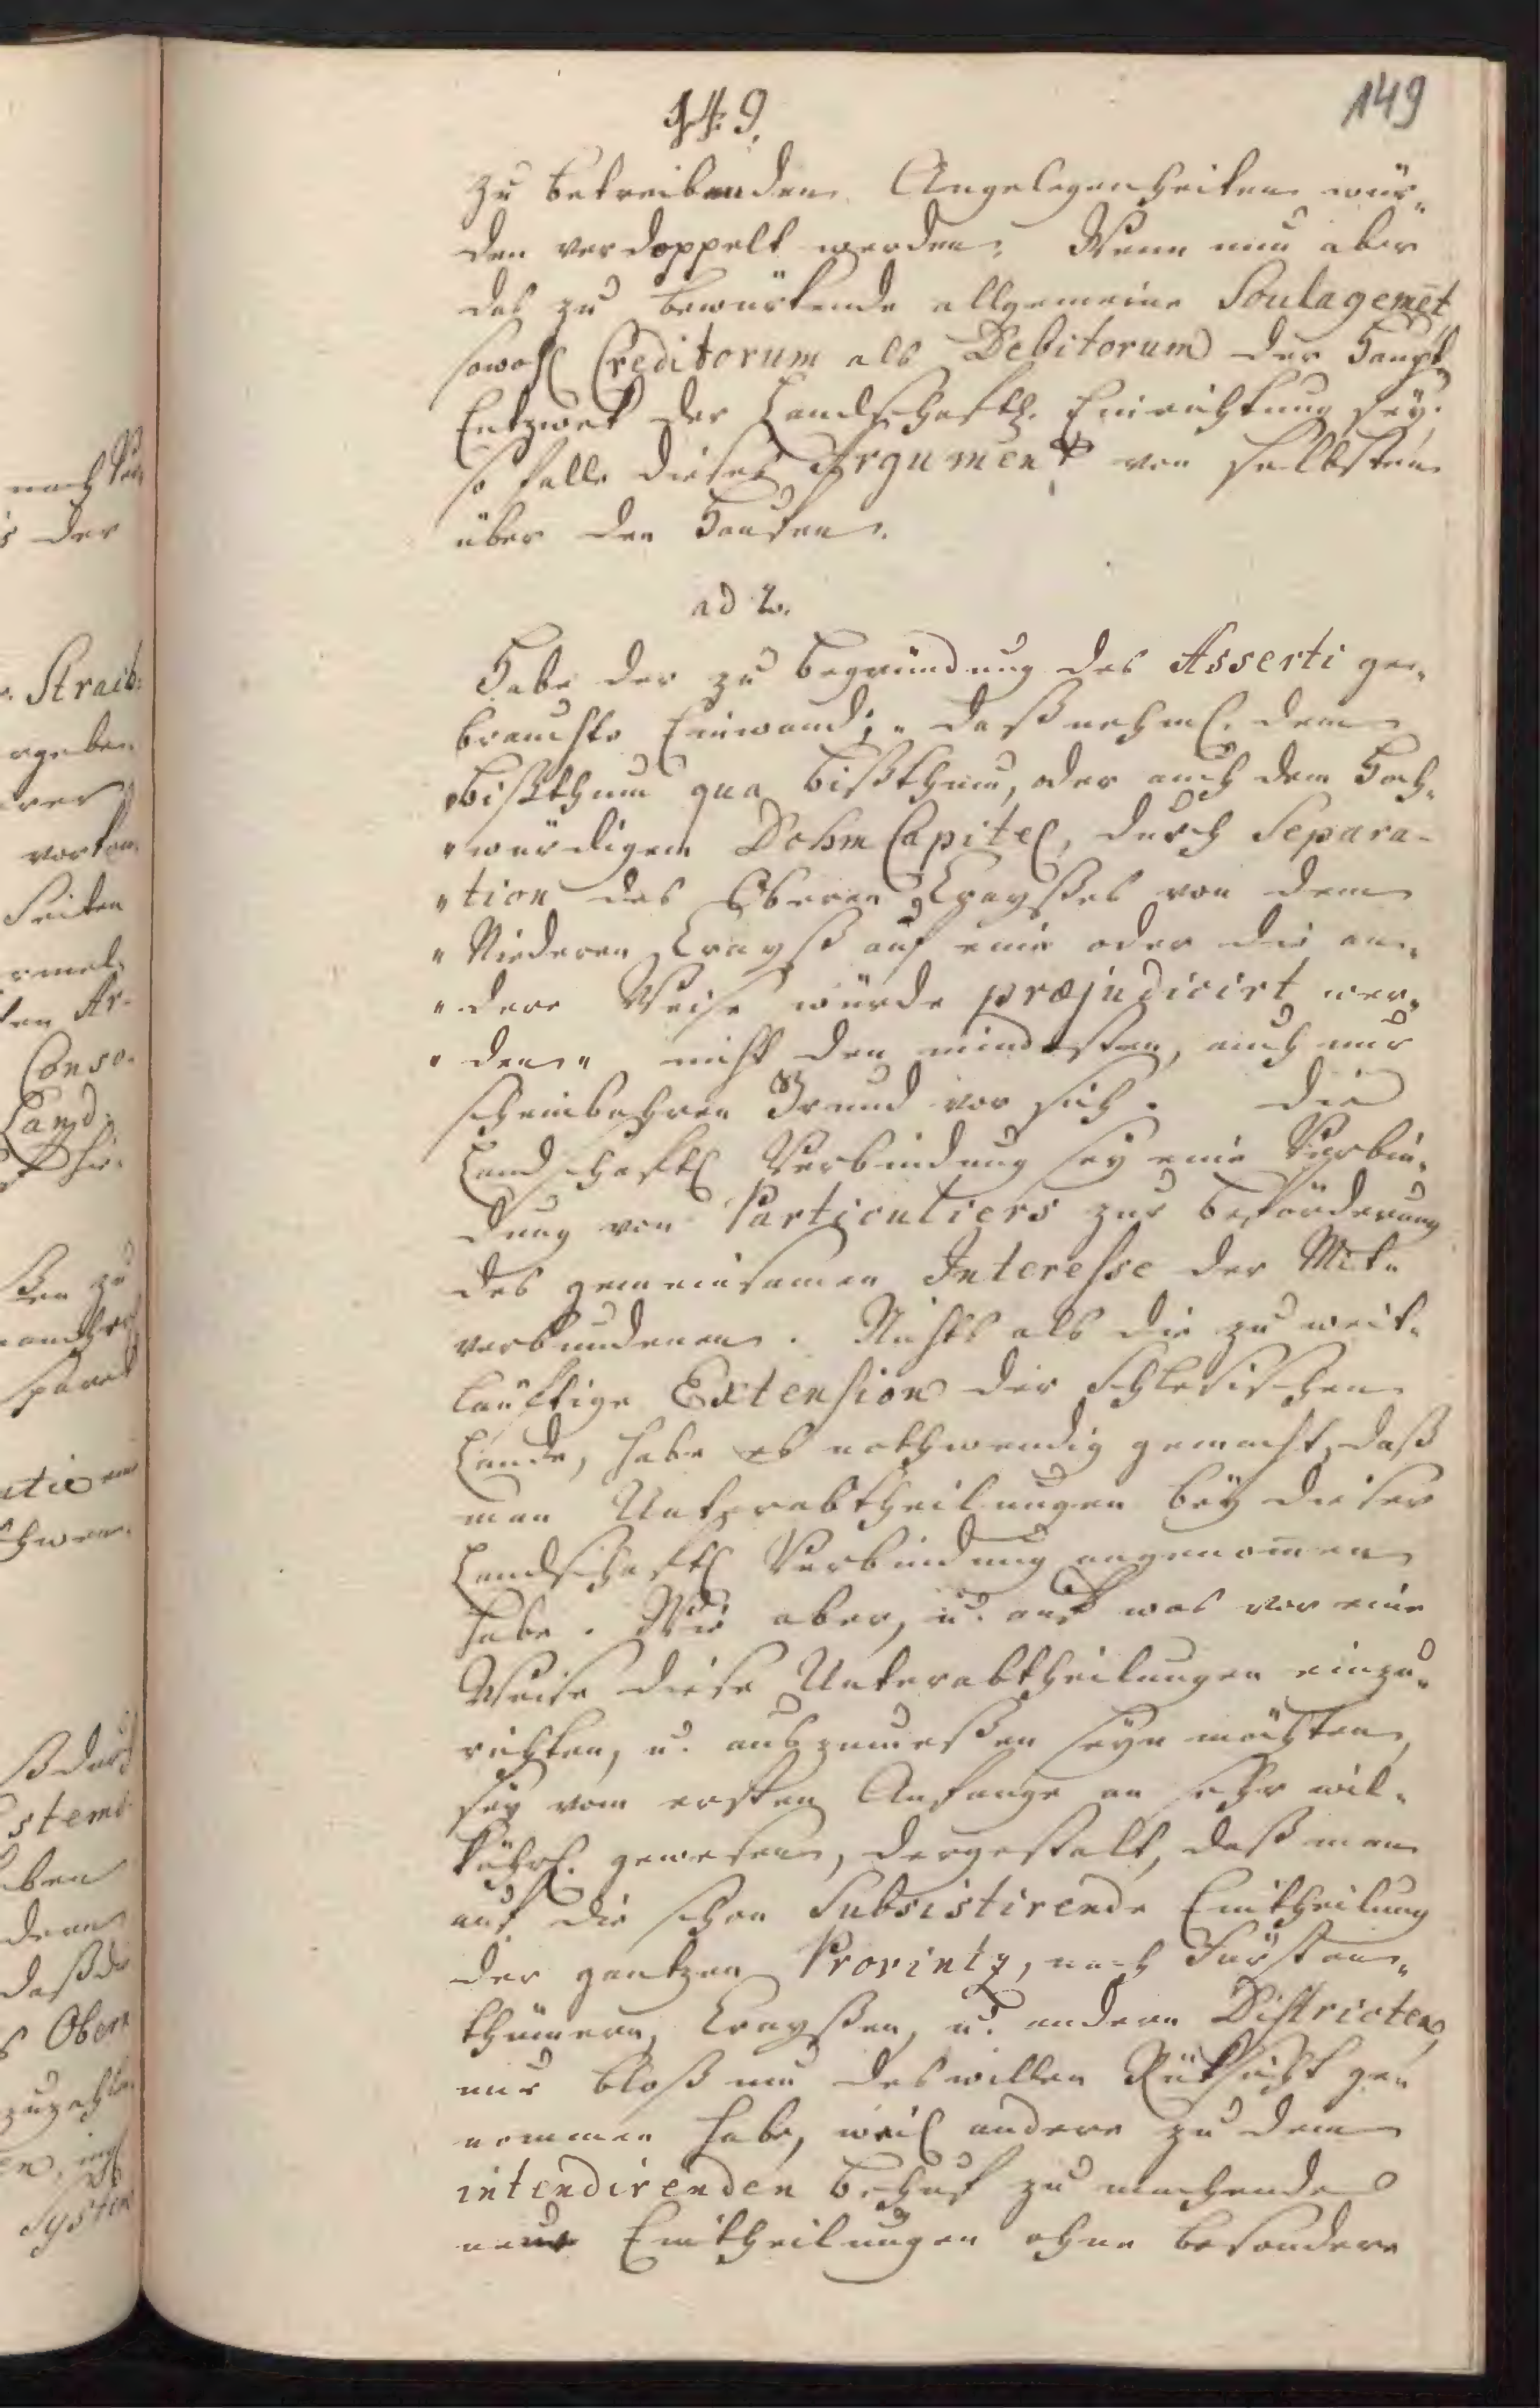 149.
149
zu betreibenden Angelegenheiten wür„
den verdoppelt werden; Wenn nun aber
das zu bewürkende allgemeine Soulagemet
sowohl Creditorum als Debitorum der Haupt„
Entzwek der Landschaftl. Einrichtung sey;
so falle dieses Argument von selbsten
über den Haufen.
ad 2.
Habe der zu Begründung des Asserti ge„
brauchte Einwand; „daß nehml. dem
„Bißthum qua Bißthum, oder auch dem Hoch„
„würdigem Dohm Capitel, durch Separa-
„tion des Oberen Crayßes von dem
„Niederen Crayß auf eine oder die an„
„dere Weise würde præjudicirt wer„
„den„ nicht den mindesten, auch nur
scheinbahren Grund vor sich. Die
Landschaftl Verbindung sey eine Verbin„
dung von Particuliers zur Beförderung
des gemeinsamen Interesse der Mit„
verbundenen. Nichts als die zu weit„
läuftige Extension der Schlesischen
Lande, habe es nothwendig gemacht, daß
man Unterabtheilungen bey dieser
Landschaftl Verbindung angenom̅en
habe. Wie aber, u. auf was vor eine
Weise diese Unterabtheilungen einzu„
richten, u. auszumeßen seyn möchten,
sey vom ersten Anfange an sehr wil„
kührl. gewesen, dergestalt, daß man
auf die schon Subsistirende Eintheilung
der gantzen Provintz, nach Fürsten„
thümern, Crayßen, u. andern Districten,
nur bloß um deswillen Rüksicht ge„
nommen habe, weil andere zu dem
intendirenden Behuf zu machende
neue Eintheilungen ohne besondere